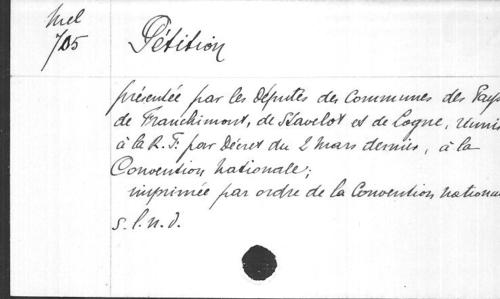 Mel
705
Pétition
présentée par les Députés des Communes des Pays
de Franchimont, de Stavelot et de Logne, réunis
à la R. F. par Décret du 2 Mars dernier, à la
Convention Nationale;
imprimée par ordre de la Convention national
s.l.n.d.